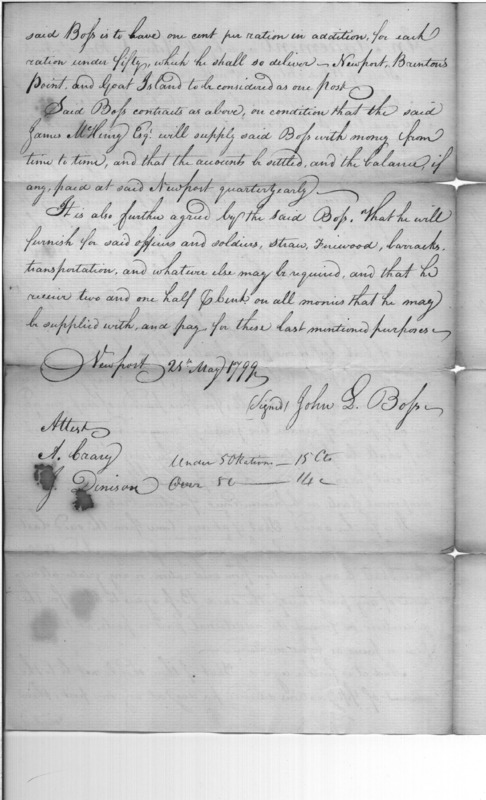 said Boss is to have one cent per ration in addition, for each
ration under fifty, which he shall so deliver — Newport, Brenton's
Point, and Goat Island to be considered as one post
Said Boss contracts as above, on condition that the said
James McHenry Esqr. will supply said Boss with money from
time to time, and that the accounts be settled, and the balance, if
any, paid at said Newport quarteryearly —
It is also further agreed by the said Boss, that he will
furnish for said officers and soldiers, straw, Firewood, barracks,
transportation, and whatever else may be required, and that he
receive two and one half P Cent on all monies that he may
be supplied with, and pay for these last mentioned purposes —
Newport 25th May 1799
(Signd) John L. Boss
Attest
A. Crary
J. Dinison
Under 50 Rations — 15 Cts
Over 50 — 14 c